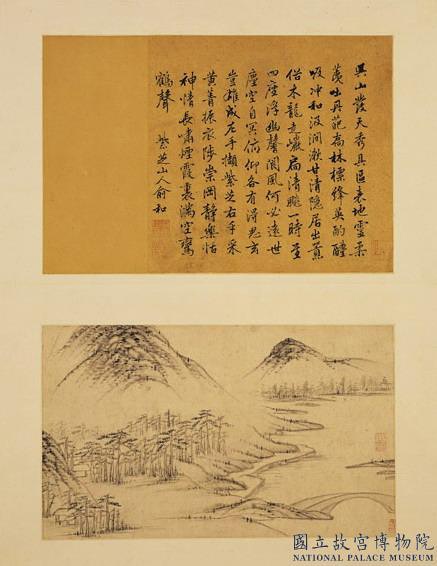 吳山發天秀具區表地靈柔
荑吐丹葩高林標絳英酌醴
吸冲和汲澗漱甘清隐居出
俗木龍走巖扃清飇一時至
四座浮幽馨閬風何必遠世
塵空自冥俯仰各有得
成左手擷紫芝右手采
黄菁振衣陟崇岡靜樂怡
神情長嘯煙霞裏滿空鸞
鶴聲 紫芝山人俞和
國立故宮博物院
NATIONAL PALACE MUSEUM